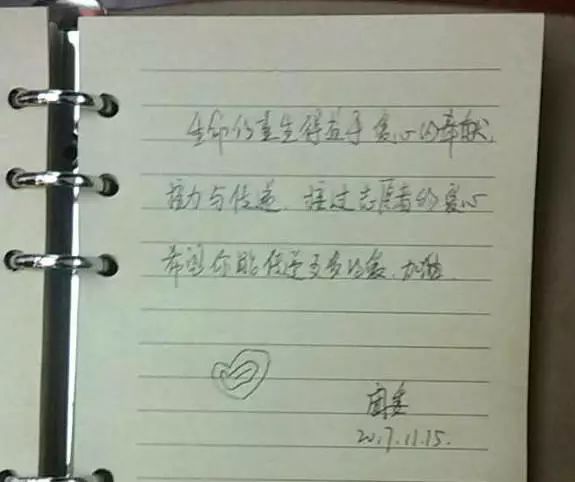 生命的重生得益于爱心的奉献,
接力与传递. 接过志愿者的爱心
希望你能传递更多的爱. 加油.
2017.11.15.